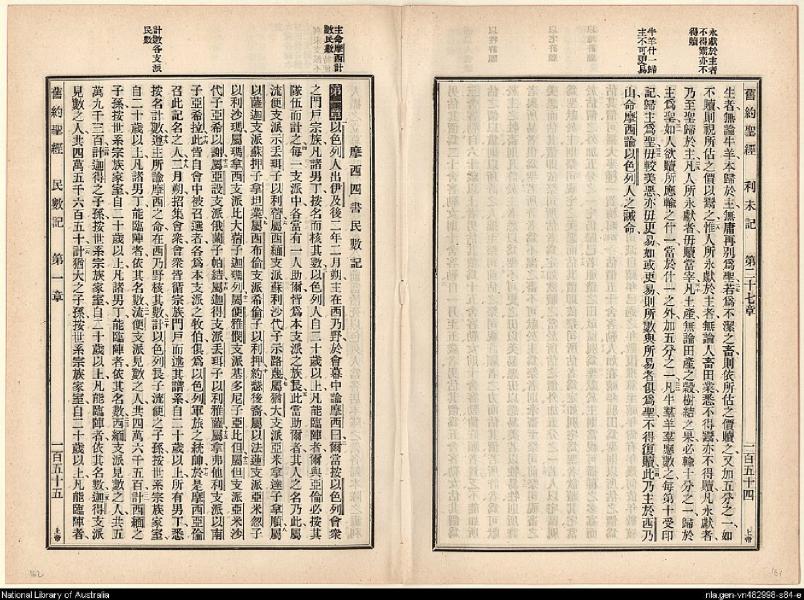 永獻於主者
不得鬻亦不
得贖
牛羊什一歸
主不可更易
舊約聖經　利未記　第二十七章　一百五十四
生者無論牛羊本歸於主無庸再別爲聖若爲不潔之畜則依所估之價贖之又加五分之一如
不贖則視所估之價以鬻之惟人所永獻於主者無論人畜田業悉不得鬻亦不得贖凡永獻者
乃至聖歸於主凡人所永獻者毋贖當宰凡土產無論田產之穀樹結之果必輸十分之一歸於
主爲聖如人欲贖所應輸之什一當於什一之外加五分之一凡牛羣羊羣憑數之每第十受印
記歸主爲聖毋較美惡亦毋更易如或更易則所數與所易者俱爲聖不得復贖此乃主於西乃
山命摩西論以色列人之誡命
主命摩西計
數民數
計數各支派
民數
摩西四書民數記
第一章以色列人出伊及後二年二月朔主在西乃野於會幕中諭摩西曰爾當按以色列會衆
之門戶宗族凡諸男丁按名而核其數以色列人自二十歲以上凡能臨陣者爾與亞倫必按其
隊伍而計之每一支派中各當有一人助爾皆爲本支派之族長此當助爾者其人之名乃此屬
流便支派示丟珥子以利蓿屬西緬支派蘇利沙代子示路蔑屬猶大支派亞米拿達子拿順屬
以薩迦支派蘇押子拿坦業屬西布倫支派希倫子以利押約瑟後裔屬以法蓮支派亞米忽子
以利沙瑪屬瑪拿西支派比大蓿子迦瑪列屬便雅憫支派基多尼子亞比但屬但支派亞米沙
代子亞希以謝屬亞設支派俄蘭子帕結屬迦得支派丟珥子以利雅薩屬拿弗他利支派以南
子亞希拉此皆自會中被召選者各爲本支派之牧伯俱爲以色列軍旅之統帥於是摩西亞倫
召此記名之人二月朔招集會衆會衆皆循宗族門戶而述其譜系自二十歲以上所有男丁悉
按名計數遵主所諭摩西之命在西乃野核其數計以色列長子流便之子孫按世系宗族家室
自二十歲以上凡諸男丁能臨陣者依其名數流便支派見數之人共四萬六千五百計西緬之
子孫按世系宗族家室自二十歲以上凡諸男丁能臨陣者依其名數西緬支派見數之人共五
萬九千三百計迦得之子孫按世系宗族家室自二十歲以上凡能臨陣者依其名數迦得支派
見數之人共四萬五千六百五十計猶大之子孫按世系宗族家室自二十歲以上凡能臨陣者
舊約聖經　民數記　第一章　一百五十五
上帝
上帝
National Library of Australia
nla.gen-vn482998-s84-e